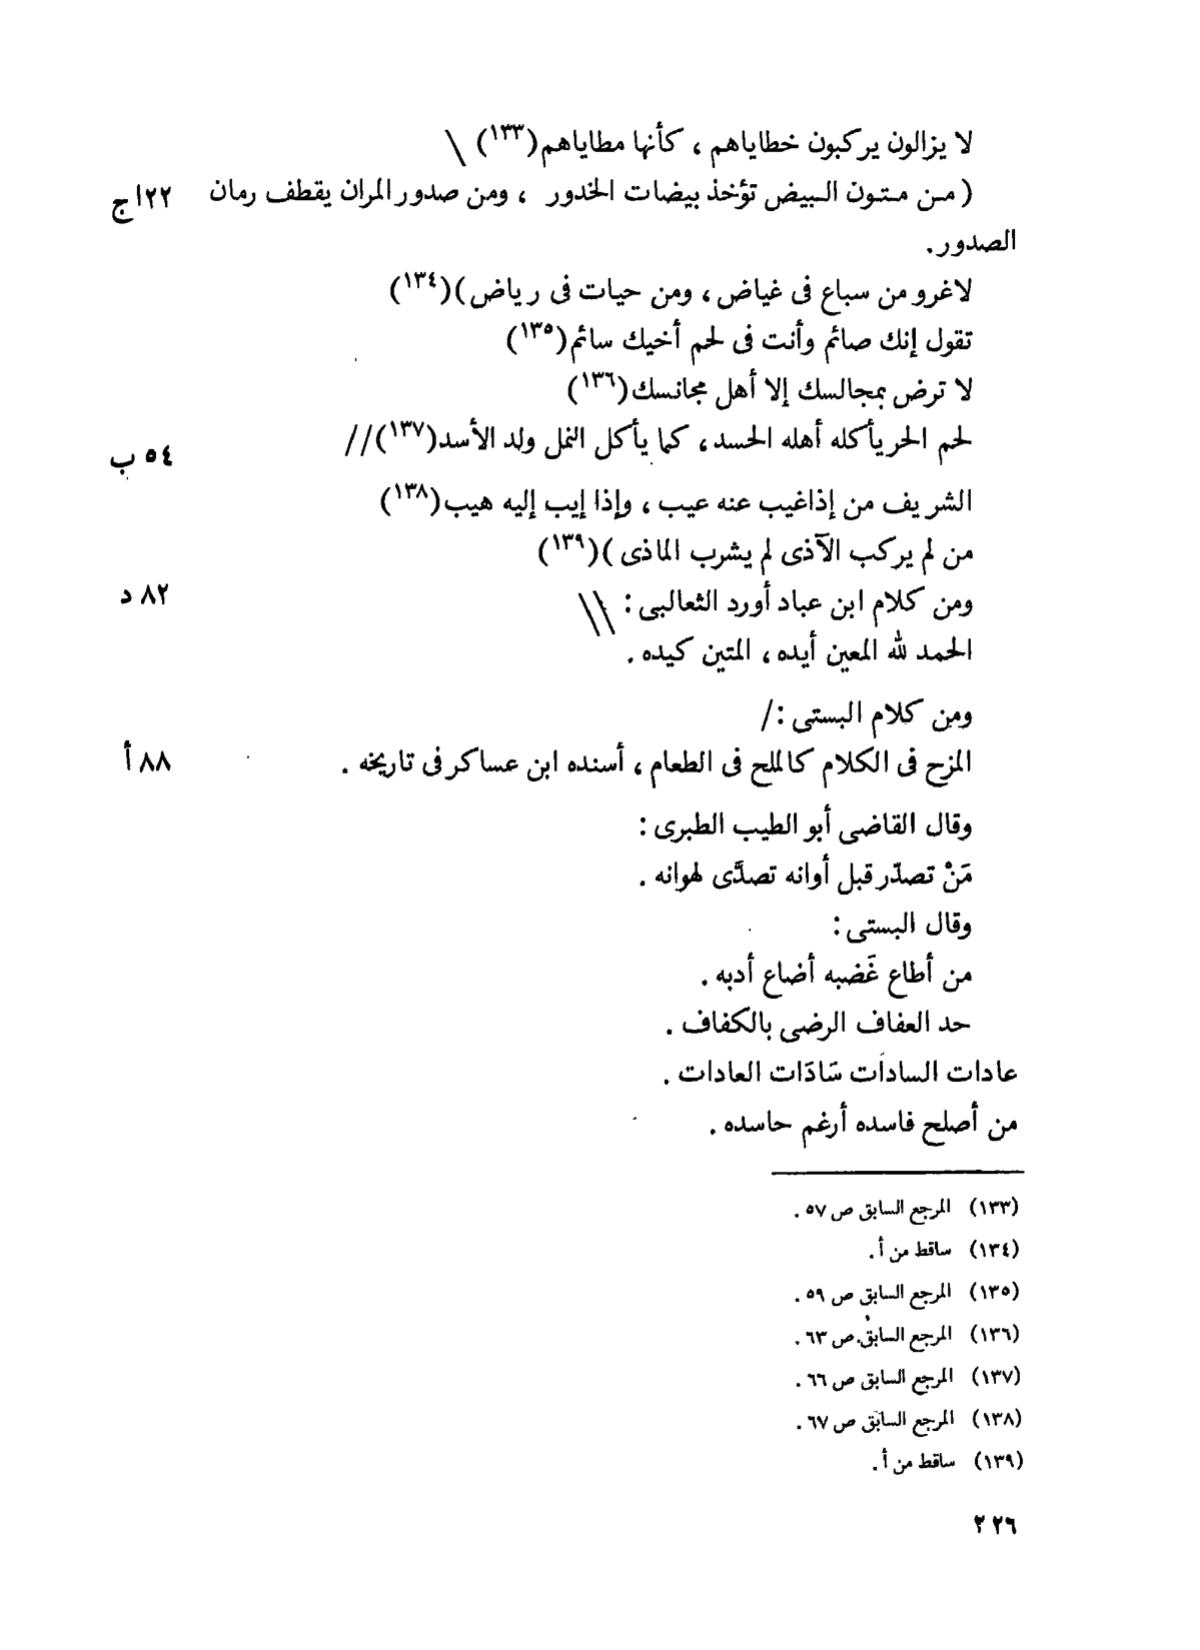 لا يزالون يركبون خطاياهم ، كأنها مطاياهم(١٣٣) \
( من متون البيض تؤخذ بيضات الخدور ، ومن صدور المران يقطف رمان ١٢٢ج
الصدور.
لاغرو من سباع فى غياض ، ومن حيات فى رياض )(١٣٤)
تقول إنك صائم وأنت فى لحم أخيك سائم(١٣٥)
لا ترض بمجالسك إلا أهل مجانسك(١٣٦)
لحم الحر يأكله أهله الحسد ، كما يأكل النمل ولد الأسد(١٣٧)// ٥٤ ب
الشريف من إذاغيب عنه عيب ، وإذا إيب إليه هيب(١٣٨)
من لم يركب الآذى لم يشرب الماذى )(١٣٩)
ومن كلام ابن عباد أورد الثعالبى : \\ ٨٢ د
الحمد لله المعين أيده ، المتين كيده .
ومن كلام البستى :/
المزح فى الكلام كالملح فى الطعام ، أسنده ابن عساكر فى تاريخه . ٨٨ أ
وقال القاضى أبو الطيب الطبرى :
مَنْ تصدّر قبل أوانه تصدَّى لهوانه .
وقال البستى :
من أطاع غَضبه أضاع أدبه .
حد العفاف الرضى بالكفاف .
عادات السادات سَادَات العادات .
من أصلح فاسده أرغم حاسده .
(١٣٣) المرجع السابق ص ٥٧ .
(١٣٤) ساقط من أ .
(١٣٥) المرجع السابق ص ٥٩ .
(١٣٦) المرجع السابق ص ٦٣ .
(١٣٧) المرجع السابق ص ٦٦ .
(١٣٨) المرجع السابق ص ٦٧ .
(١٣٩) ساقط من أ .
٢٢٦